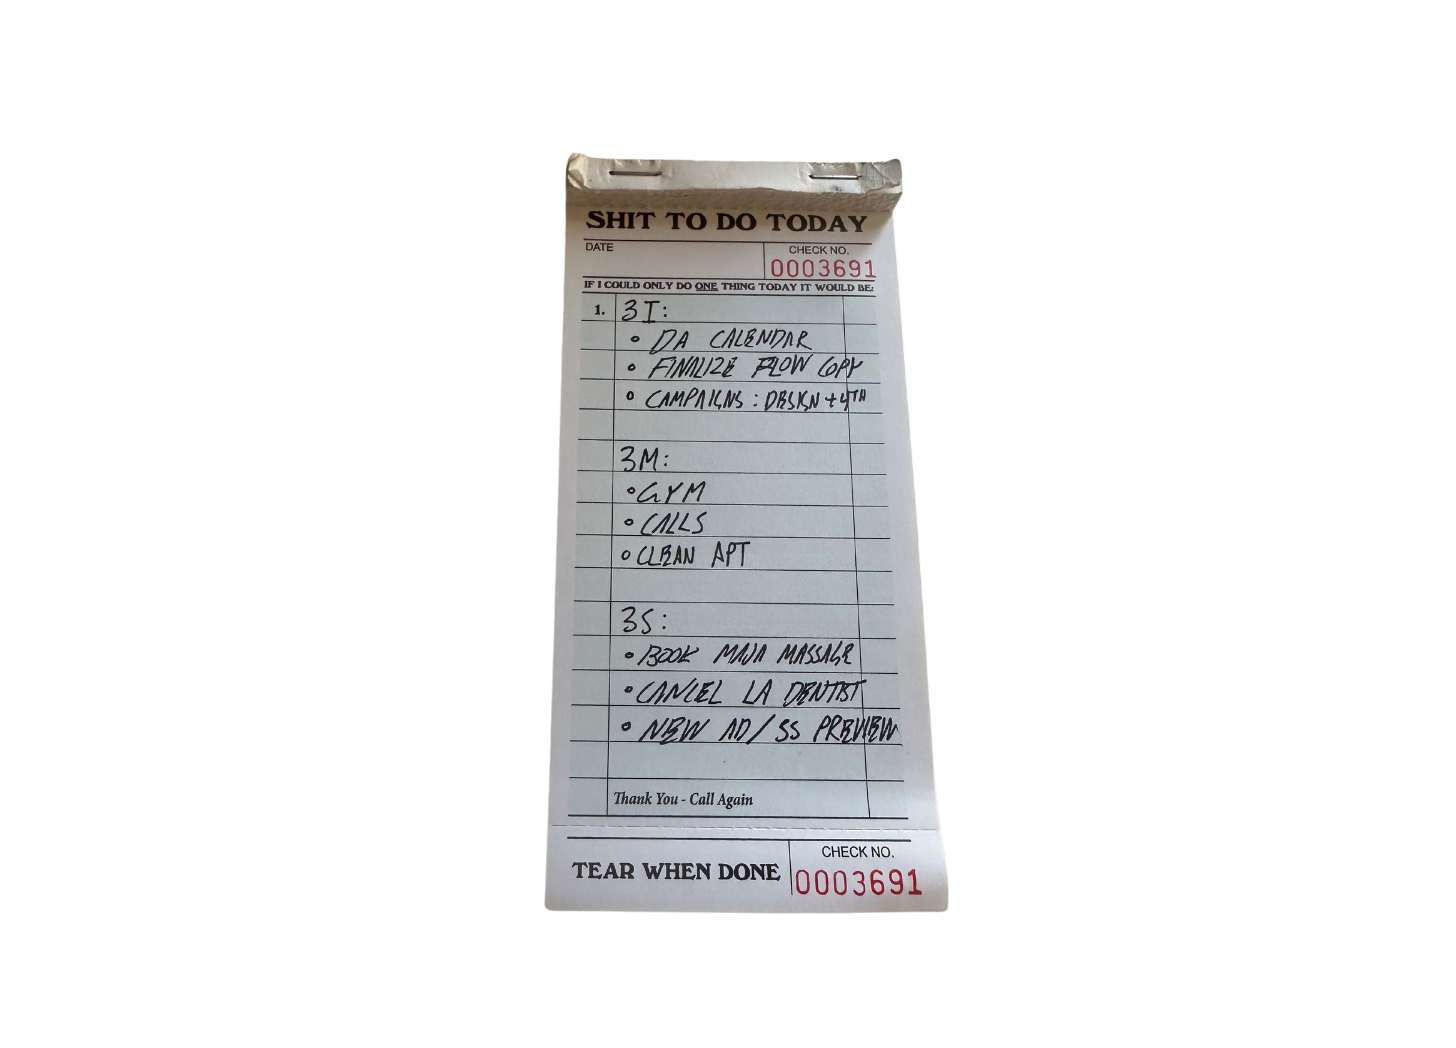 SHIT TO DO TODAY
DATE
CHECK NO.
0003691
IF I COULD ONLY DO ONE THING TODAY IT WOULD BE:
1. 3I:
• DA CALENDAR
• FINALIZE FLOW COPY
• CAMPAIGNS : DESIGN + 4TH
3M:
• GYM
• CALLS
• CLEAN APT
3S:
• BOOK MAJA MASSAGE
• CANCEL LA DENTIST
• NEW AD/SS PREVIEW
Thank You - Call Again
TEAR WHEN DONE
CHECK NO.
0003691